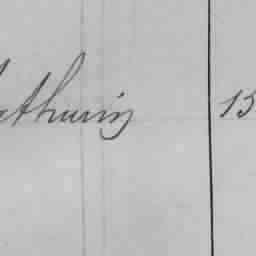 athurin 15